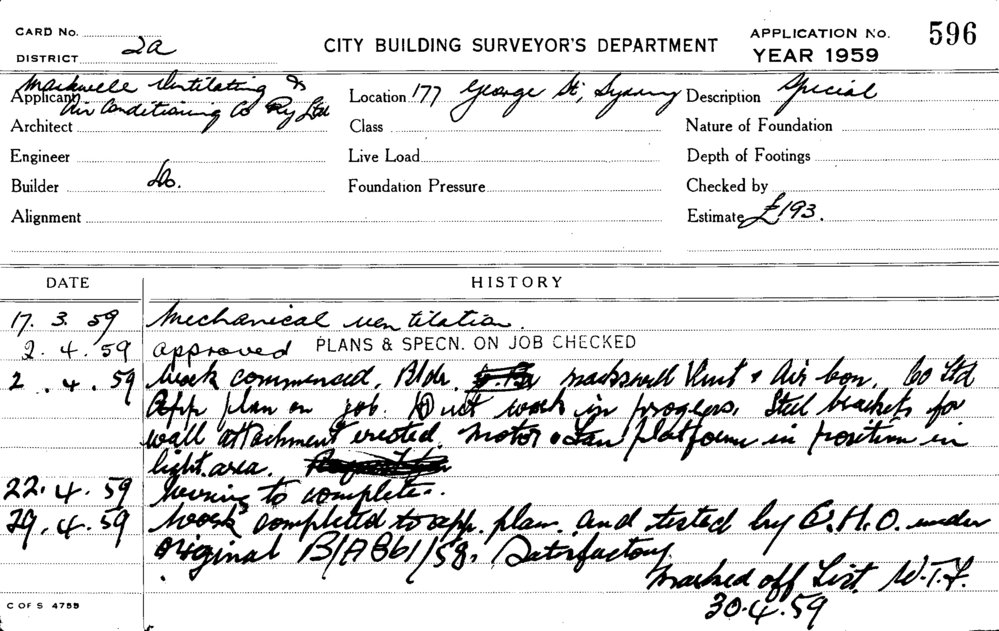 CARD No.
DISTRICT 2a
CITY BUILDING SURVEYOR'S DEPARTMENT
APPLICATION No. 596
YEAR 1959
Applicant Mackwell Ventilating &
Air Conditioning Co Pty Ltd
Location 177 George St, Sydney
Description Special
Architect
Class
Nature of Foundation
Engineer
Live Load
Depth of Footings
Builder Do.
Foundation Pressure
Checked by
Alignment
Estimate £193.
DATE HISTORY
17. 3. 59 Mechanical ventilation.
2. 4. 59 approved PLANS & SPECN. ON JOB CHECKED
2. 4. 59 Work commenced. Bldr. Vent & Air Con. Co Ltd
App plan on job. Duct work in progess. Steel brackets for
wall attachment erected. Motor & Fan platform in position in
light area.
22. 4. 59 to complete.
29. 4. 59 Work completed to app. plan. and tested by E.H.O. under
original B/A 861/58. Satisfactory.
Marked off List. W.T.F.
30.4.59
C OF S 4755